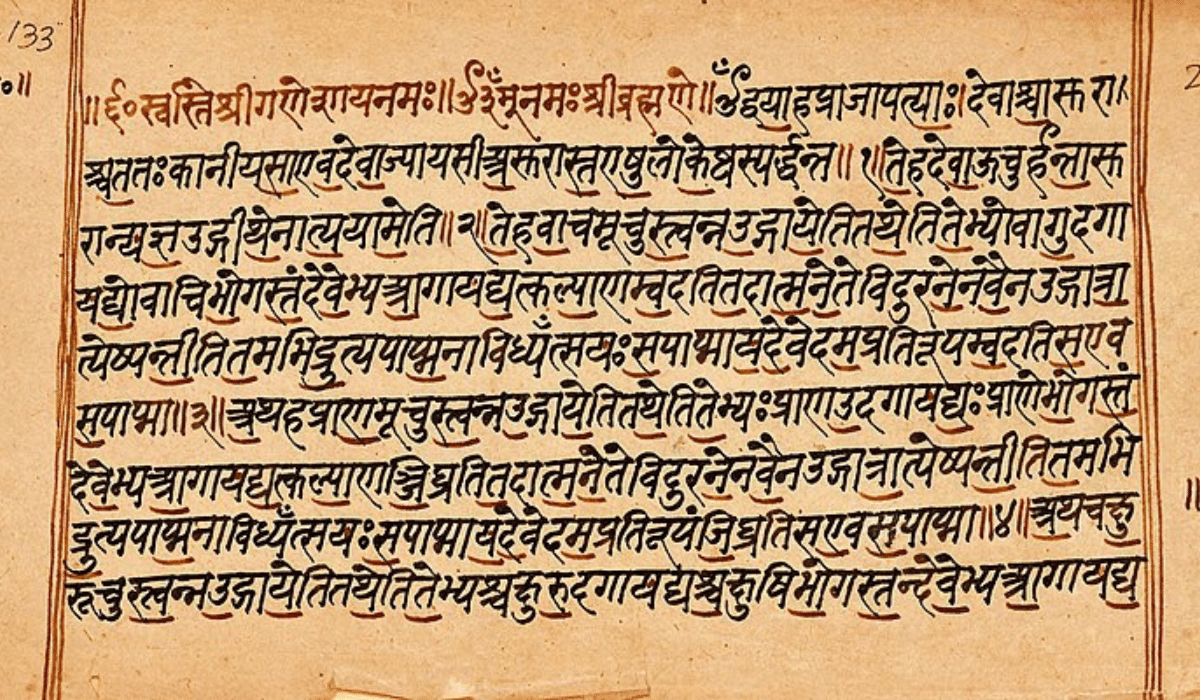 133
॰॥
॥ई॰स्वस्तिश्रीगणेशायनमः॥ॐ३म्नमःश्रीब्रह्मणे॥ॐद्वयाहप्राजापत्याः।देवाश्चासुरा।
श्चततःकानीयसाएवदेवाज्यायसीअसुरास्तएषुलोकेष्वस्पर्द्धन्त॥१॥तेहदेवाऊचुर्हन्तासु
रान्यज्ञउद्गीथेनात्ययामेति॥२॥तेहवाचमूचुस्त्वन्नउद्गायेतितथेतितेभ्योवागुदगा
यद्योवाचिभोगस्तंदेवेभ्यआगायद्यत्कल्याणम्वदतितदात्मनेतेविदुरनेनवैनउद्गात्रा
त्येष्यन्तीतितमभिद्रुत्यपाप्मनाविध्यँत्सयःसपाप्मायदेवेदमप्रतिरूपम्वदतिसएव
सपाप्मा॥३॥अथहप्राणमूचुस्त्वन्नउद्गायेतितथेतितेभ्यःप्राणउदगायद्यःप्राणेभोगस्तं
देवेभ्यआगायद्यत्कल्याणञ्जिघ्रतितदात्मनेतेविदुरनेनवैनउद्गात्रात्येष्यन्तीतितमभि
द्रुत्यपाप्मनाविध्यँत्सयःसपाप्मायदेवेदमप्रतिरूपंजिघ्रतिसएवसपाप्मा॥४॥अथचक्षु
रूचुस्त्वन्नउद्गायेतितथेतितेभ्यश्चक्षुरुदगायद्यश्चक्षुषिभोगस्तन्देवेभ्यआगायद्य